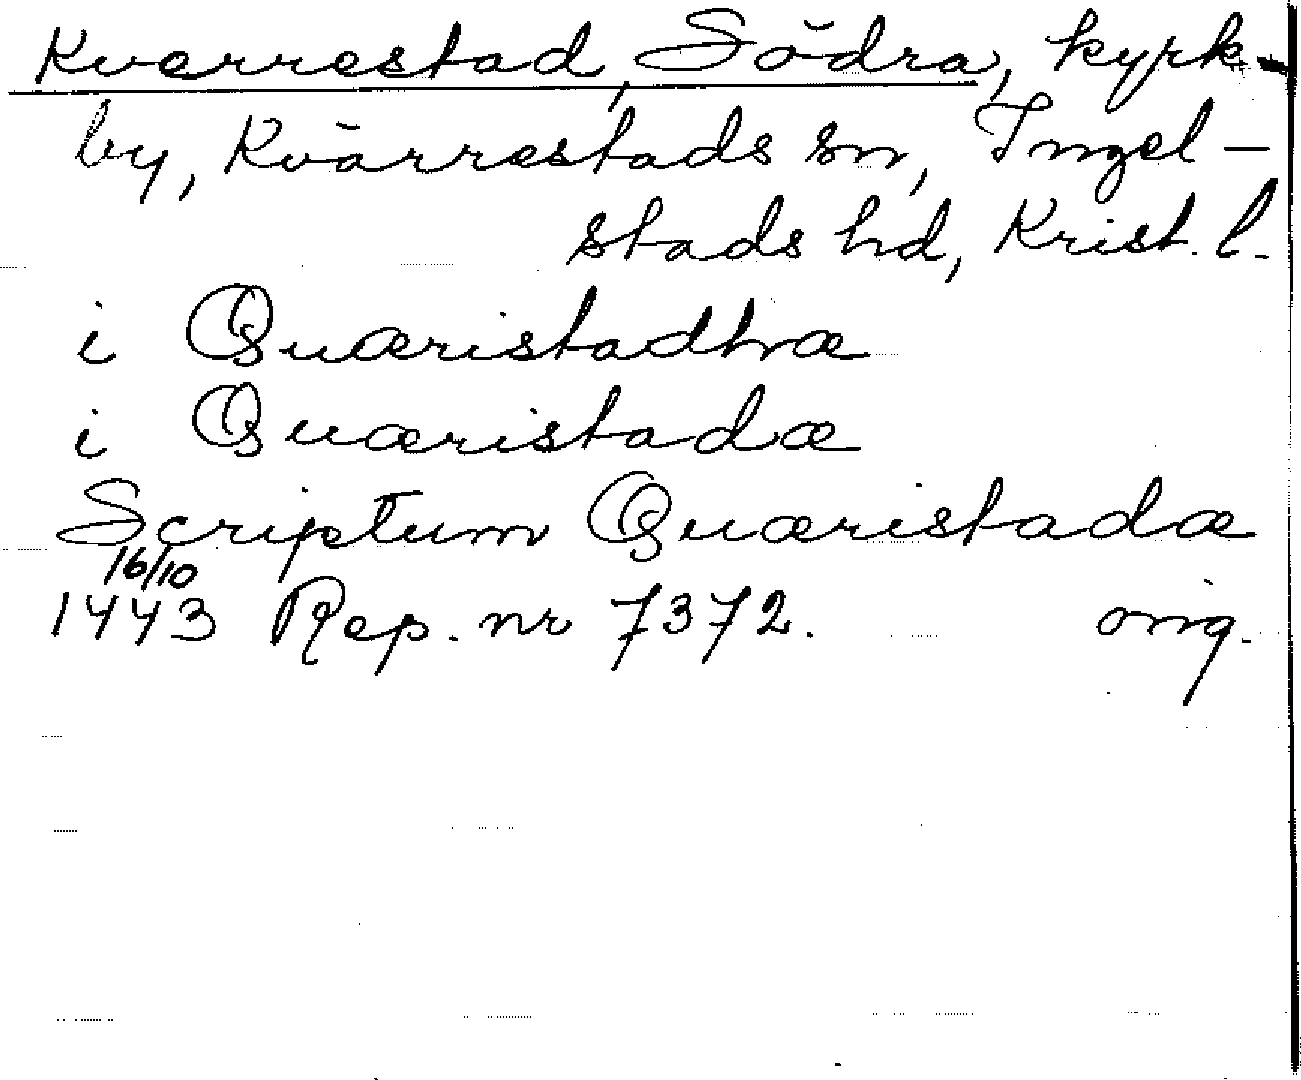 Kverrestad, Södra, kyrk-
by, Kvärrestads sn, Ingel-
stads hd, Krist. l.
i Quæristadhæ
i Quæristadæ
Scriptum Quæristadæ
16/10
1443 Rep. nr 7372. orig.